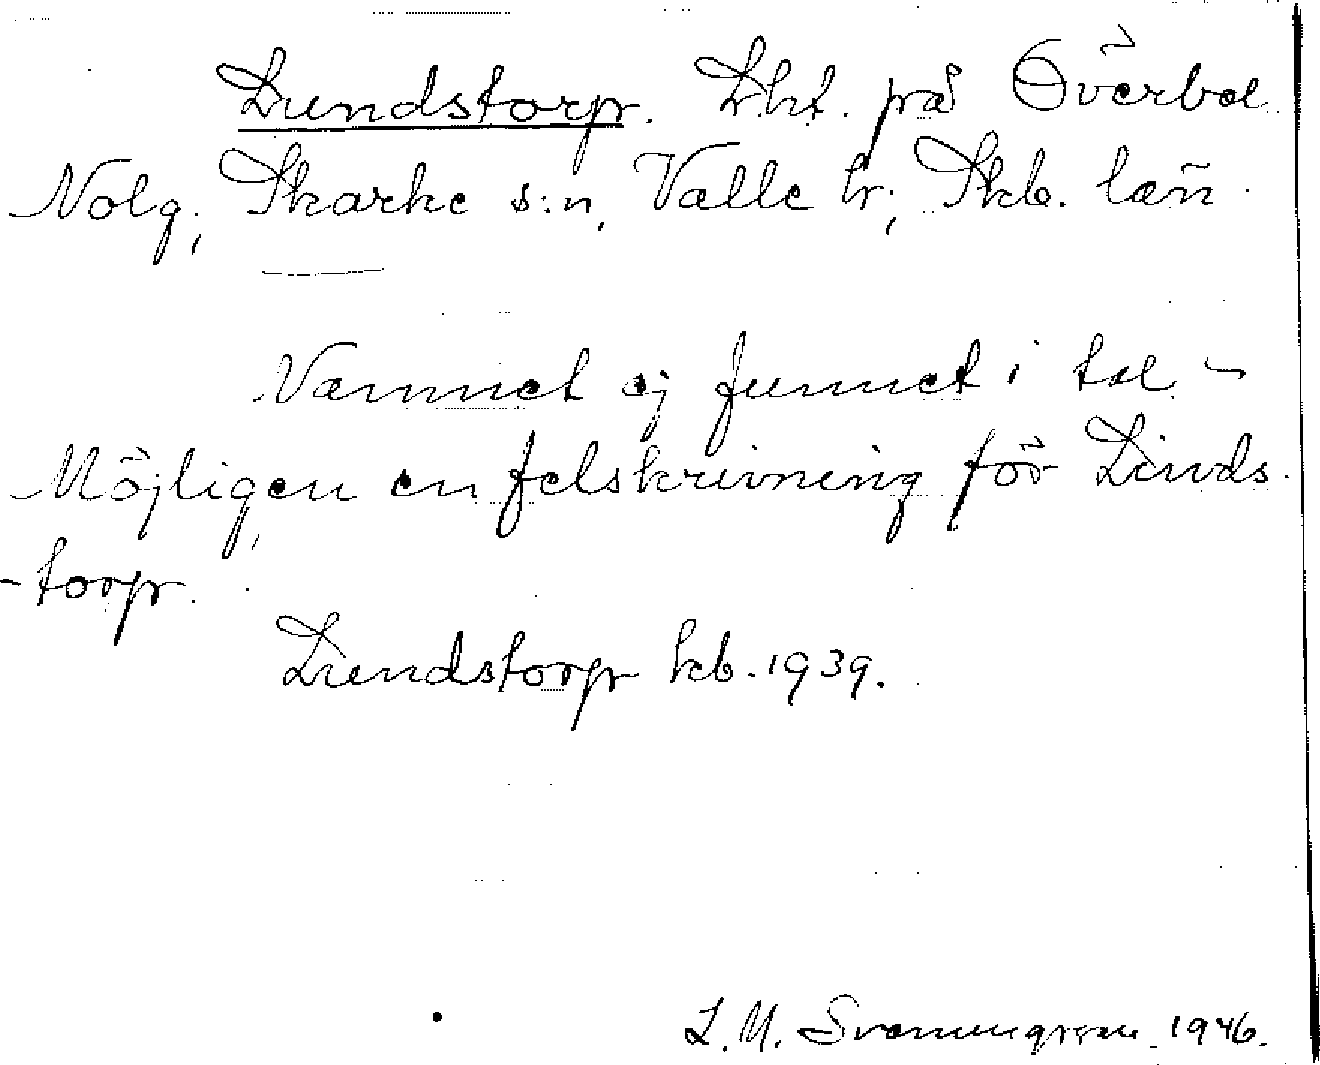 Lundstorp. Lht. på Överbol
Nolg, Skarke s:n, Valle hr, Skb. län.
Namnet ej funnet i tal -
Möjligen en felskrivning för Linds
-torp.
Lundstorp kb. 1939.
L. M. Svenungsson 1946.